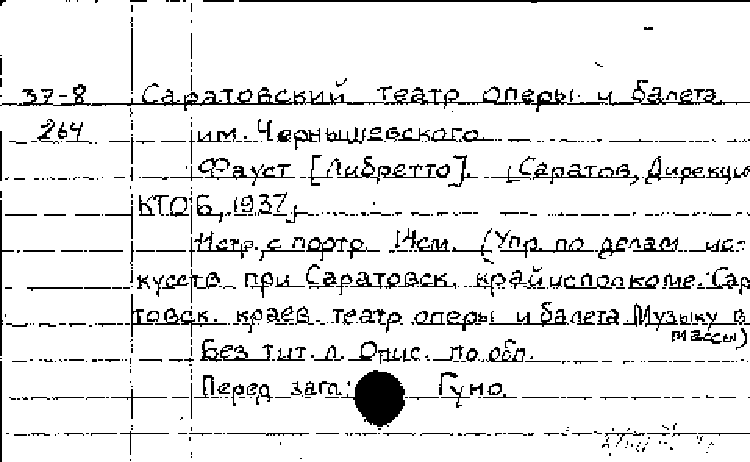 37-8 Саратовский театр оперы и балета
264 им. Чернышевского
Фауст [Либретто]. [Саратов, Дирекция
КТОБ, 1937]
11стр. с портр. 14см. (Упр. по делам ис-
кусств при Саратовск. крайисполкоме. Сар
товск. краев. театр оперы и балета Музыку в
массы)
Без тит. л. Опис. по обл.
Перед загл: Гуно.